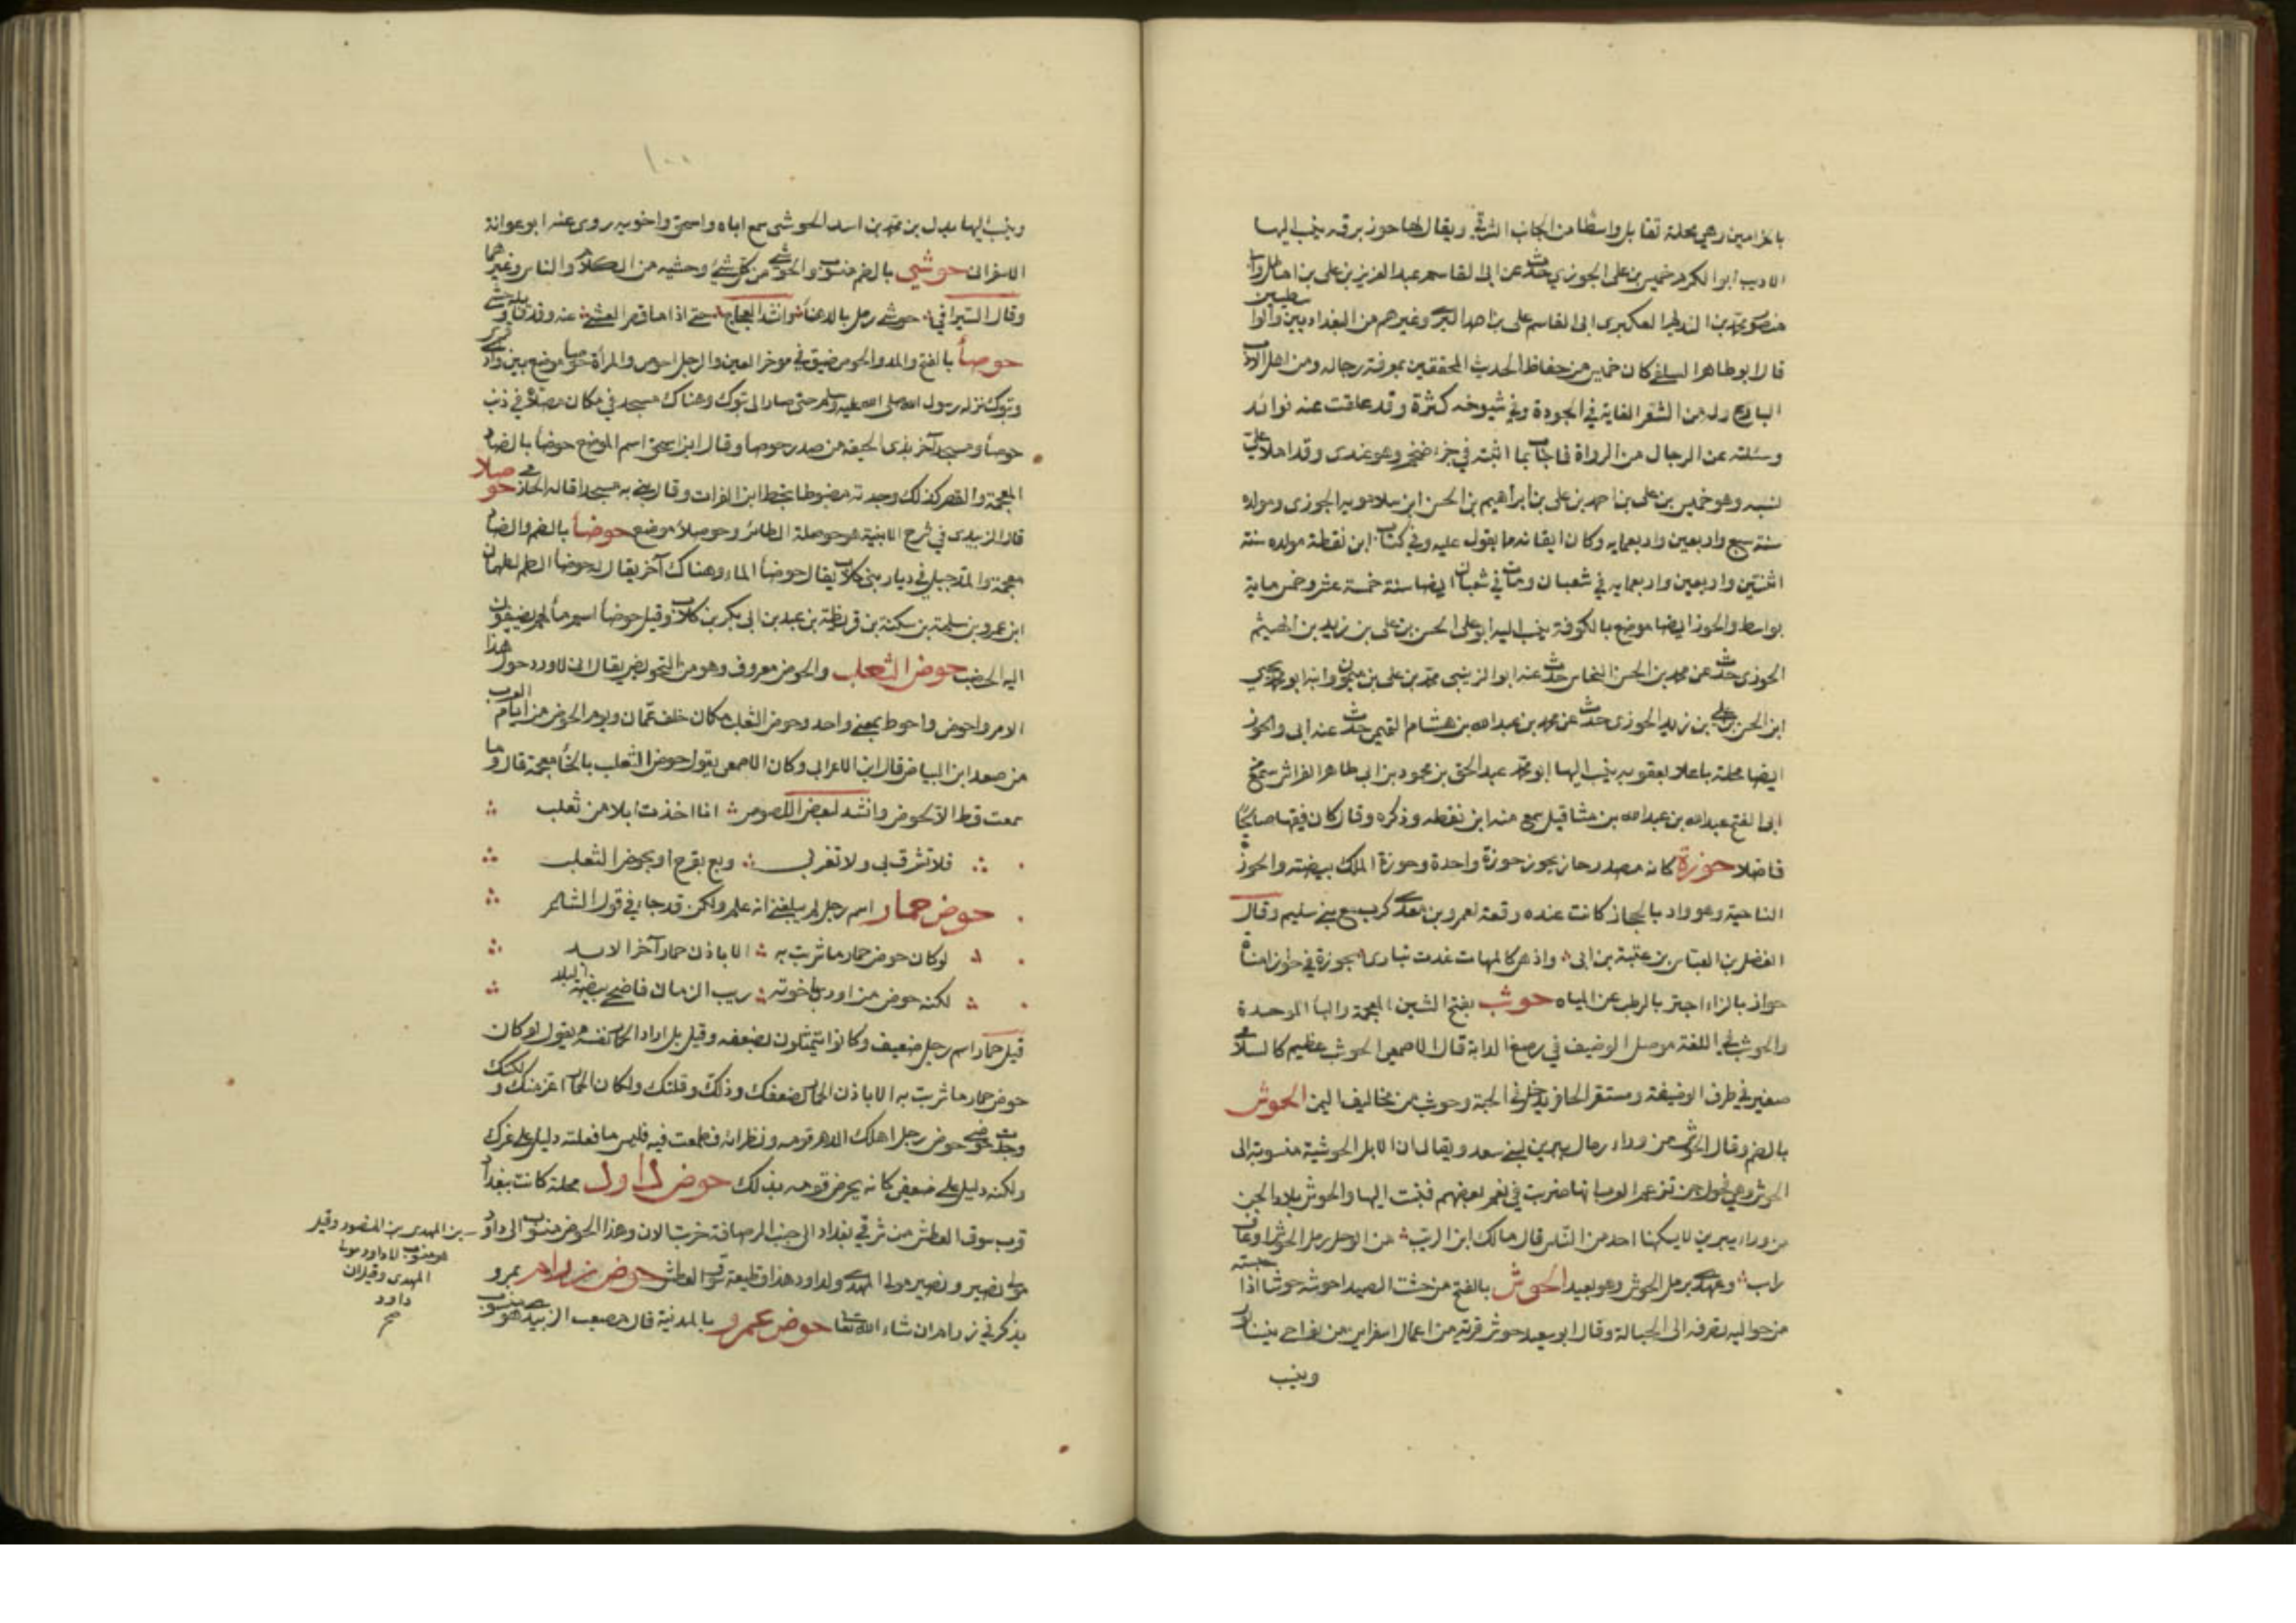 بالحزامين وهي محلة تقابل واسطا من الجانب الشرقي ويقال لها حوز برقة ينسب اليها
الاديب ابو الكرم خميس بن علي الحوزي حدث عن ابي القاسم عبد العزيز بن علي بن احمد
منصور محمد بن النديم العكبري ابي القاسم علي بن احمد البسري وغيرهم من البغداديين والواسطيين
قال ابو طاهر السلفي كان خميس من حفاظ الحديث المحققين بمعرفة رجاله ومن اهل الادب
البارع وله من الشعر الغاية في الجودة وفي شيوخه كثرة وقد علقت عنه فوائد
وسئلته عن الرجال من الرواة فاجاب بما اثبته في جزء ضخم وهو عندي وقد املا علي
نسبه وهو خميس بن علي بن احمد بن علي بن ابراهيم بن الحسن ابن سلامويه الحوزي ومولده
سنة سبع واربعين واربعمايه وكان اتقانه مما يعول عليه وفي كتاب ابن نقطة مولده سنة
اثنتين واربعين واربعمايه في شعبان ومات في شعبان ايضا سنة خمسة عشر وخمس ماية
بواسط والحوز ايضا موضع بالكوفة ينسب اليه ابو علي الحسن بن علي بن زيد بن الهيثم
الحوزي حدث عن محمد بن الحسن النحاس حدث عنه ابو الزينبي محمد بن علي بن ميمون وابنه ابو محمد يحيى
ابن الحسن بن علي بن زيد الحوزي حدث عن محمد بن عبد الله بن هشام التيمي حدث عنه ابي والحوز
ايضا محلة باعلا بعقوبه ينسب اليها ابو محمد عبد الحق بن محمود بن ابي طاهر الفراش سمع
ابى الفتح عبد الله بن عبد الله بن شاتيل سمع منه ابن نقطه وذكره وقال كان فقيها صالحا
فاضلا حوزة كانه مصدر حاز يحوز حوزة واحدة وحوزة الملك بيضته والحوزة
الناحية وهو واد بالحجاز كانت عنده وقعة لعمرو بن معدي كرب مع بني سليم وقال
الفضل بن العباس بن عتبة بن ابي ؞ واذ هي كالمهاة غدت تباري ؞ بحوزة في حوازا امنات
حواز بالزاء اجتز بالرطب عن المياه حوشب بفتح الشين المعجمة والباء الموحدة
والحوشب في اللغة موصل الوظيف في رصغ الدابة قال الاصمعي الحوشب عظيم كالسلامى
صغير في طرف الوظيفة ومستقر الحافر يدخل في الجبة وحوشب من مخاليف اليمن الحوش
بالضم وقال الحوش من وراء رمال يبرين لبني سعد ويقال ان الابل الحوشية منسوبة الى
الحوش وهي فحول جن تزعم العرب انها ضربت في نعم بعضهم فنسبت اليها والحوش بلاد الجن
من وراء يبرين لا يسكنها احد من الناس قال مالك ابن الريب ؞ من الرمل رمل الحوش او غاف
راسب ؞ وعهدي برمل الحوش وهو بعيد الحوش بالفتح من حشت الصيد احوشه حوشا اذا جئته
من حواليه لتصرفه الى الحبالة وقال ابو سعيد حوش قرية من اعمال اسفراين من نواحي نيسابور
وينسب
١٠٠
وينسب اليها بدل بن محمد بن اسد الحوشي سمع اباه واسحق واخويه روى عنه ابو عوانة
الاسفراني حوشي بالضم منسوب والحوشي من كل شيء وحشيه من الكلام والناس وغيرهما
وقال السيرافي حوشي رمل بالدهناء وانشد العجاج ؞ حتى اذا ما قصر العشي ؞ عنه وقد قابله حوشي
حوصاء بالفتح والمد والحوص ضيق في موخر العين والرجل احوص والمرأة حوصا موضع بين وادي القرى
وتبوك نزله رسول الله صلى الله عليه وسلم حتى صار الى تبوك وهناك مسجد في مكان مصلاه في ذنب
حوصاء ومسجد آخر بذي الجيفة من صدر حوصا وقال ابن اسحق اسم الموضع حوضا بالضاد
المعجمة والقصر كذلك وجدته مضبوطا بخط ابن الفرات وقال بنى به مسجدا قاله الحازمي حوصلا
قال الزبيدي في شرح الابنية هو حوصلة الطائر وحوصلاء موضع حوضاء بالضم والضاد
معجمة والمد جبل في ديار بني كلاب يقال حوضاء الماء وهناك آخر يقال له حوضاء الظم لطهمان
ابن عمرو بن سلمة بن سكنة بن قريظة بن عبد بن ابي بكر بن كلاب وقيل حوضاء اسم ماء لهم يضيفون
اليه الهضب حوض الثعلب والحوض معروف وهو من التحويض يقال اني لادور حول هذا
الامر واحوض واحوط بمعنى واحد وحوض الثعلب مكان خلف عمان ويوم الحوض من ايام العرب
من صعد ابن البياض قال ابن الاعرابي وكان الاصمعي يقول حوض الثعلب بالخاء معجمة قال وما
سمعت قط الا الحوض وانشد لبعض اللصوص ؞ اذا اخذت ابلا من ثعلب ؞
؞ فلا تشرق بي ولا تغرب ؞ وبع بقرح او بحوض الثعلب ؞
حوض حمار اسم رجل لم يبلغني انه علم ولكن قد جاء في قول الشاعر ؞
لو كان حوض حمار ما شربت به ؞ الا باذن حمار آخر الابد ؞
؞ لكنه حوض من اودى باخوته ؞ ريب الزمان فاضحى بيضة البلد ؞
قيل حمار اسم رجل ضعيف وكانوا يتمثلون بضعفه وقيل بل اراد الحمار نفسه يقول لو كان
حوض حمار ما شربت به الا باذن الحمار لضعفك وذلك وقلتك ولكان الحمار اعز منك ولكنك
وجدت حوضي حوض رجل اهلك الدهر قومه ونظرائه فطمعت فيه فليس ما فعلته دليل على عزك
ولكنه دليل على ضعفي كانه يحرض قومه بذلك حوض داود محلة كانت ببغداد
قرب سوق العطش من شرقي بغداد الى جنب الرصافة خربت الان وهذا الحوض منسوب الى داود
مولى نصير ونصير مولى المهدي ولداود هذا قطيعة سوق العطش حوض زرام بمرو
يذكر في زرام ان شاء الله تعالى حوض عمرو بالمدينة قال مصعب الزبيري هو منسوب
بن المهدي بن المنصور وقيل
هو منسوب الى داود مولى
المهدي وقيل ان
داود
صح